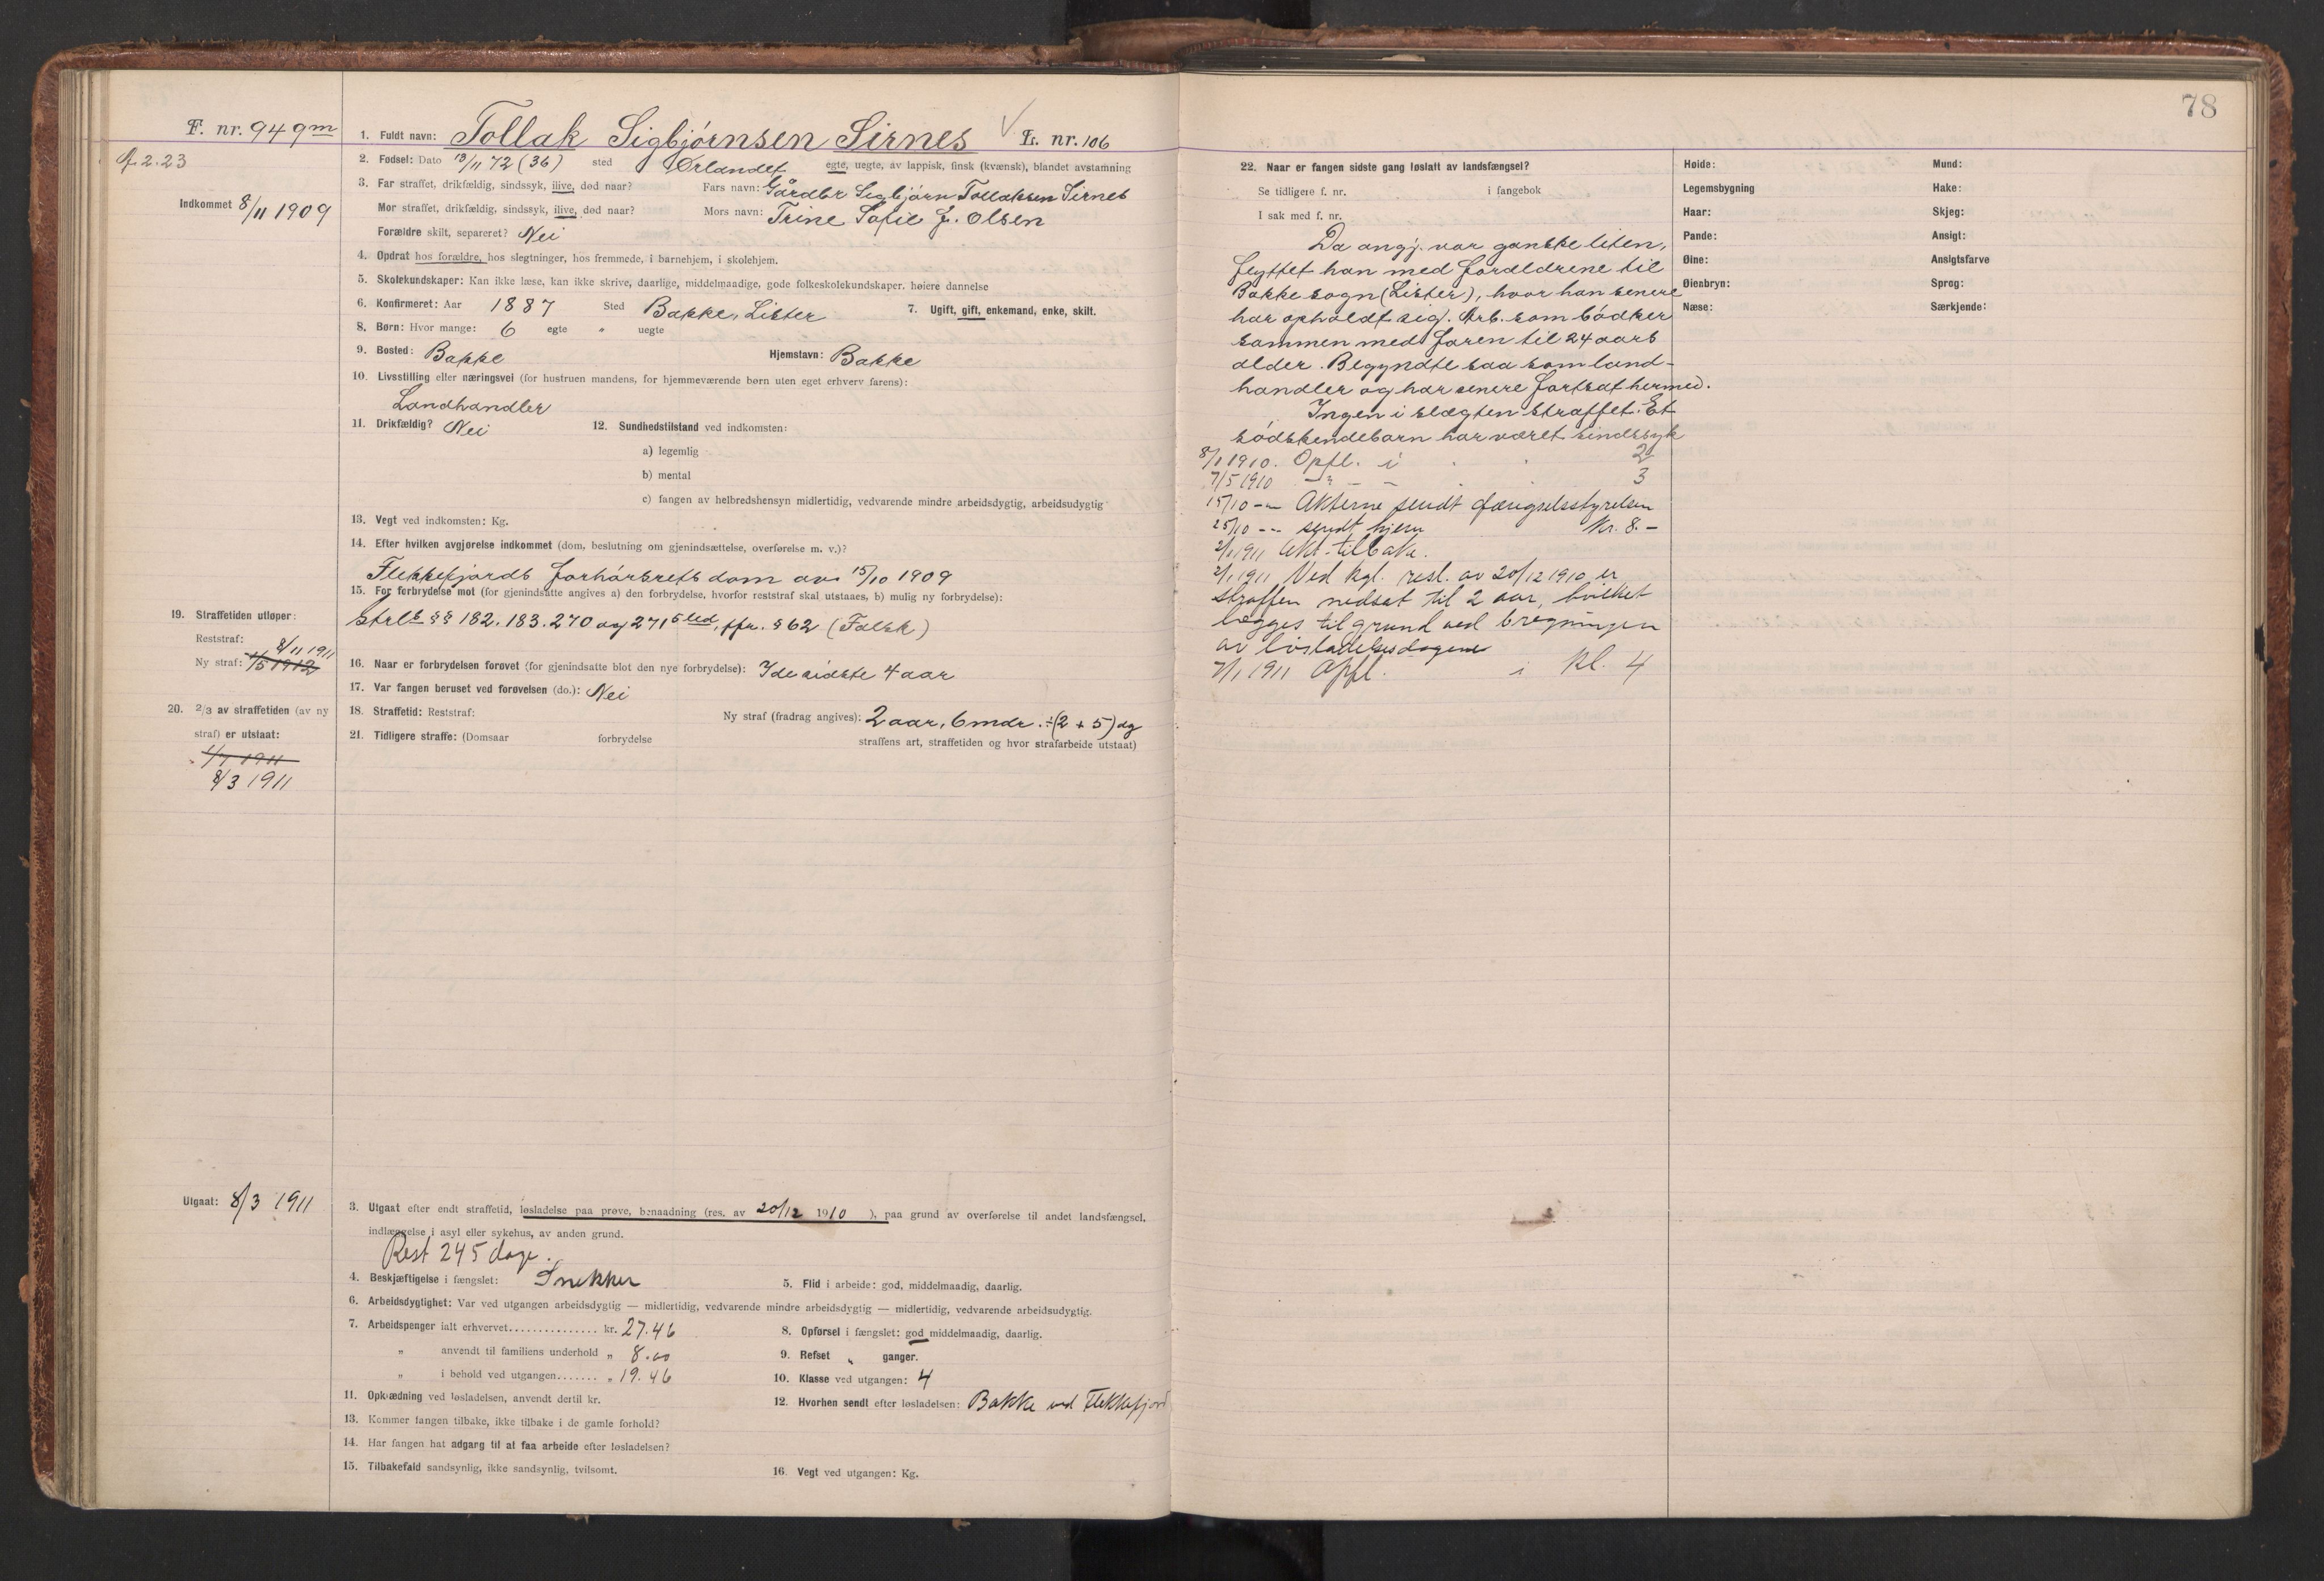 F. nr. 949m
f. 2.23
Indkommet 8/11 1909
1. Fuldt navn: Tollak Sigbjørnsen Sirnes L. nr. 106
2. Fødsel: Dato 13/11 72 (36) sted Ørlandet egte, uegte, av lappisk, finsk (kvænsk), blandet avstamning
3. Far straffet, drikfældig, sindssyk, ilive, død naar? Fars navn: Gårdbr Sigbjørn Tollaksen Sirnes
Mor straffet, drikfældig, sindssyk, ilive, død naar? Mors navn: Trine Sofie f. Olsen
Forældre skilt, separeret? Nei
4. Opdrat hos forældre, hos slegtninger, hos fremmede, i barnehjem, i skolehjem.
5. Skolekundskaper: Kan ikke læse, kan ikke skrive, daarlige, middelmaadige, gode folkeskolekundskaper. høiere dannelse
6. Konfirmeret: Aar 1887 Sted Bakke, Lister 7. Ugift, gift, enkemand, enke, skilt.
8. Børn: Hvor mange: 6 egte " uegte
9. Bosted: Bakke Hjemstavn: Bakke
10. Livsstilling eller næringsvei (for hustruen mandens, for hjemmeværende børn uten eget erhverv farens):
Landhandler
11. Drikfældig? Nei 12. Sundhedstilstand ved indkomsten:
a) legemlig
b) mental
c) fangen av helbredshensyn midlertidig, vedvarende mindre arbeidsdygtig, arbeidsudygtig
13. Vegt ved indkomsten: Kg.
14. Efter hvilken avgjørelse indkommet (dom, beslutning om gjenindsættelse, overførelse m. v.)?
Flekkefjords forhørsrets dom av 15/10 1909
15. For forbrydelse mot (for gjenindsatte angives a) den forbrydelse, hvorfor reststraf skal utstaaes, b) mulig ny forbrydelse):
Strls §§ 182. 183. 270 og 271 5 led, jfr. § 62 (Falsk)
16. Naar er forbrydelsen forøvet (for gjenindsatte blot den nye forbrydelse): I de sidste 4 aar
17. Var fangen beruset ved forøvelsen (do.): Nei
18. Straffetid: Reststraf: Ny straf (fradrag angives): 2 aar, 6 mdr. ÷(2 + 5) dg
21. Tidligere straffe: (Domsaar forbrydelse straffens art, straffetiden og hvor strafarbeide utstaat)
19. Straffetiden utløper:
Reststraf: 8/11 1911
Ny straf: 1/5 1912
20. 2/3 av straffetiden (av ny
straf) er utstaat:
1/7 1911
8/3 1911
Utgaat: 8/3 1911
3. Utgaat efter endt straffetid, løsladelse paa prøve, benaadning (res. av 20/12 1910 ), paa grund av overførelse til andet landsfængsel,
indlæggelse i asyl eller sykehus, av anden grund.
Rest 245 dage.
4. Beskjæftigelse i fængslet: Snekker 5. Flid i arbeide: god, middelmaadig, daarlig.
6. Arbeidsdygtighet: Var ved utgangen arbeidsdygtig — midlertidig, vedvarende mindre arbeidsdygtig — midlertidig, vedvarende arbeidsudygtig.
7. Arbeidspenger ialt erhvervet............... kr. 27.46 8. Opførsel i fængslet: god middelmaadig, daarlig.
" anvendt til familiens underhold „ 8.00 9. Refset " ganger.
" i behold ved utgangen....... „ 19.46 10. Klasse ved utgangen: 4
11. Opklædning ved løsladelsen, anvendt dertil kr. 12. Hvorhen sendt efter løsladelsen: Bakke ved Flekkefjord
13. Kommer fangen tilbake, ikke tilbake i de gamle forhold?
14. Har fangen hat adgang til at faa arbeide efter løsladelsen?
15. Tilbakefald sandsynlig, ikke sandsynlig, tvilsomt. 16. Vegt ved utgangen: Kg.
78
22. Naar er fangen sidste gang løslatt av landsfængsel?
Se tidligere f. nr. i fangebok
I sak med f. nr.
Da angj. var ganske liten,
flyttet han med forældrene til
Bakke sogn (Lister), hvor han senere
har opholdt sig. Arb. som bødker
sammen med faren til 24 aars
alder. Begyndte saa som land-
handler og har senere fortsat hermed.
Ingen i slægten straffet. Et
sødskendebarn har været sindssyk
8/1 1910. Opfl. i 2
7/5 1910 -"- - 3
15/10 -"- Akterne sendt fængselsstyrelsen
25/10 -"- sendt hjem Kr. 8.-
2/1 1911 Akt. tilbake.
2/1 1911 Ved kgl. resl. av 20/12 1910 er
straffen nedsat til 2 aar, hvilket
lægges til grund ved bregningen
av løsladelsesdagene
7/1 1911 Opfl. i kl. 4
Høide: Mund:
Legemsbygning Hake:
Haar: Skjeg:
Pande: Ansigt:
Øine: Ansigtsfarve
Øienbryn: Sprog:
Næse: Særkjende: